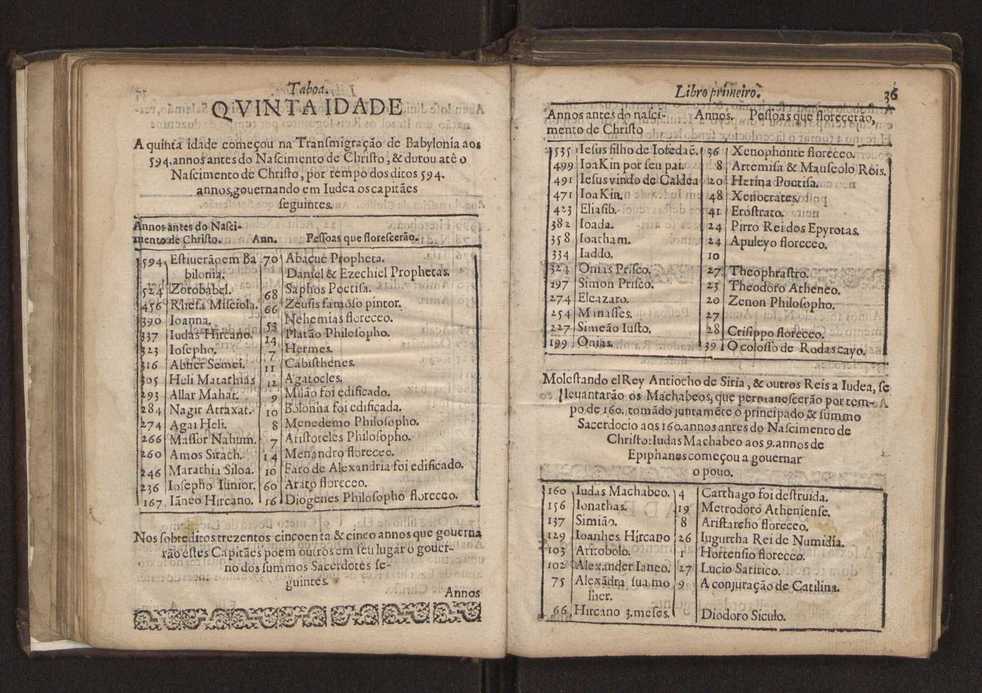 Taboa.
QVINTA IDADE
A quinta idade começou na Transmigração de Babylonia aos
594. annos antes do Nascimento de Christo, & durou atê o
Nascimento de Christo, por tempo dos ditos 594.
annos, gouernando em Iudea os capitães
seguintes.
Annos antes do Nasci-
mento de Christo. Ann. Pessoas que florescerão.
594. Estiuerão em Ba 70 Abacuc Propheta.
bilonia. Daniel & Ezechiel Prophetas.
524 Zorobabel. 68 Saphos Poetisa.
456 Rhesa Misciola. 66 Zeusis famoso pintor.
390 Ioanna. 53 Nehemias floreceo.
337 Iudas Hircano. 14 Platão Philosopho.
323 Iosepho. 7 Hermes.
316 Abner Semei. 11 Cabisthenes.
305 Heli Matathias 12 Agatocles.
293 Allar Mahat. 9 Milão foi edificado.
284 Nagit Atraxat. 10 Bolonina foi edificada.
274 Agai Heli. 8 Menedemo Philosopho.
266 Massor Nahum. 7 Aristoteles Philosopho.
260 Amos Sirach. 14 Menandro floreceo.
246 Marathia Siloa. 10 Faro de Alexandria foi edificado.
236 Iosepho Iunior. 60 Arato floreceo.
167. Iãneo Hircano. 16 Diogenes Philosopho floreceo.
Nos sobreditos trezentos cincoenta & cinco annos que gouerna
rão estes Capitães poem outros em seu lugar o gouer-
no dos summos Sacerdotes se-
guintes.
Annos
Libro primeiro. 36
Annos antes do nasci- Annos. Pessoas que florecerão,
mento de Christo
535 Iesus filho de Iosedaê. 36 Xenophonte floreceo.
499 IoaKin por seu pai. 8 Artemisa & Mauseolo Reis.
491 Iesus vindo de Caldea 20 Herina Poetisa.
471 IoaKin. 48 Xenocrates.
423 Eliasib. 41 Erostrato.
382 Ioada. 24 Pirro Rei dos Epyrotas.
358 Ioatham. 24 Apuleyo floreceo.
334 Iaddo. 10
324 Onias Prisco. 27 Theophrastro.
297 Simon Prisco. 23 Theodoro Atheneo.
274 Eleazaro. 20 Zenon Philosopho.
254 Minasses. 27
227 Simeão Iusto. 28 Crisippo floreceo.
199 Onias. 39 O colosso de Rodas cayo.
Molestando el Rey Antiocho de Siria, & outros Reis a Iudea, se
leuantarão os Machabeos, que permanescerão por tem-
po de 160. tomãdo juntamẽte o principado & summo
Sacerdocio aos 160. annos antes do Nascimento de
Christo: Iudas Machabeo aos 9. annos de
Epiphanes começou a gouernar
o pouo.
160 Iudas Machabeo. 4 Carthago foi destruida.
156 Ionathas. 19 Metrodoro Atheniense.
137 Simião. 8 Aristarcho floreceo.
129 Ioanhes Hircano 26 Iugurtha Rei de Numidia.
103 Aritobolo. 1 Hortensio floreceo.
102 Alexander Ianeo. 27 Lucio Satirico.
75 Alexãdra sua mo 9 A conjuração de Catilina.
lher.
66 Hircano 3. meses. Diodoro Siculo.